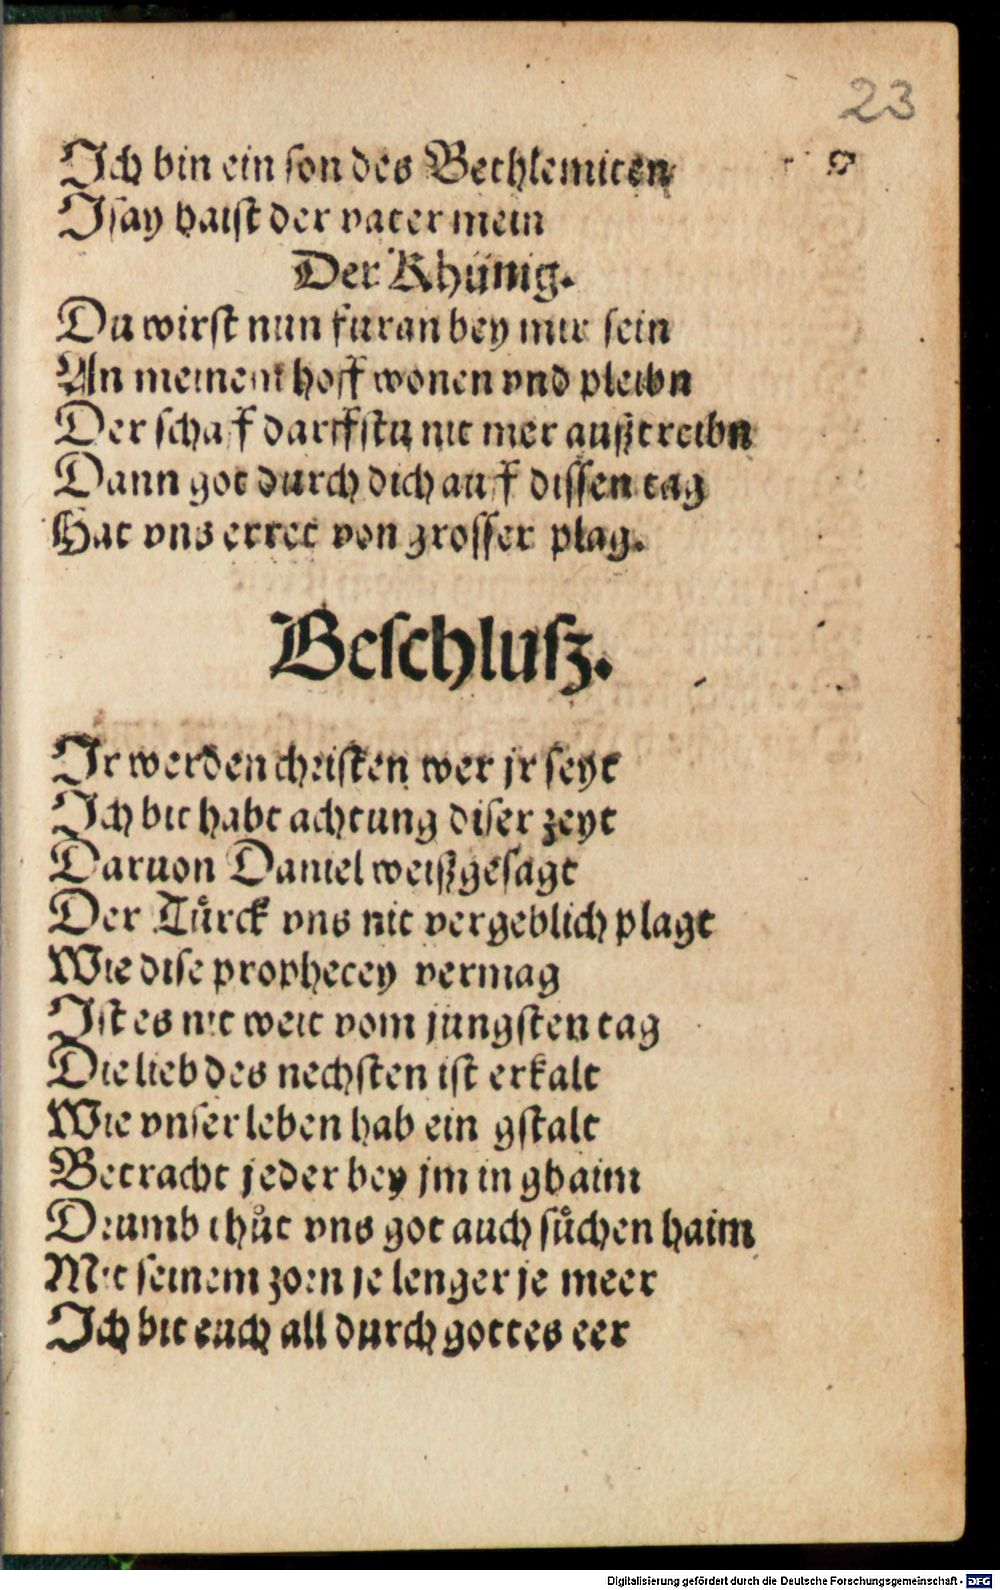 23
Ich bin ein son des Bethlemiten
Isay haist der vater mein
Der Khünig.
Du wirst nun furan bey mir sein
An meinem hoff wonen vnd pleibn
Der schaff darffstu nit mer außtreibn
Dann got durch dich auff dissen tag
Hat vns erret von grosser plag.
Beschlusz.
Ir werden christen wer jr seyt
Ich bit habt achtung diser zeyt
Daruon Daniel weißgesagt
Der Tuͤrck vns nit vergeblich plagt
Wie dise prophecey vermag
Ist es nit weit vom jungsten tag
Die lieb des nechsten ist erkalt
Wie vnser leben hab ein gstalt
Betracht jeder bey jm in ghaim
Drumb thuͦt vns got auch suͦchen haim
Mit seinem zorn je lenger je meer
Ich bit euch all durch gottes eer
Digitalisierung gefördert durch die Deutsche Forschungsgemeinschaft - DFG